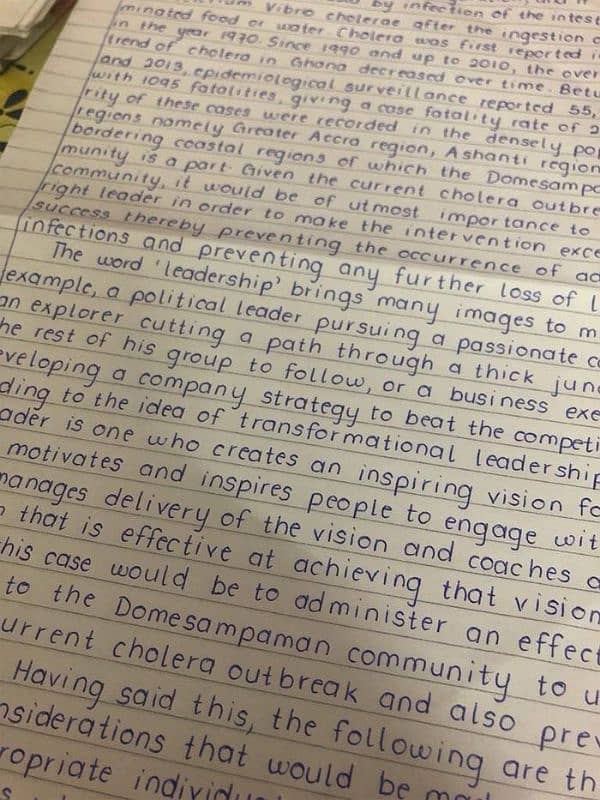 by infection of the intest
Vibrio cholerae after the ingestion o
minated food or water. Cholera was first reported i
in the year 1970. Since 1990 and up to 2010, the over
trend of cholera in Ghana decreased over time. Betw
and 2013, epidemiological surveillance reported 55,
with 1095 fatalities, giving a case fatality rate of 2
rity of these cases were recorded in the densely pop
regions namely Greater Accra region, Ashanti region
bordering coastal regions of which the Domesampa
munity is a part. Given the current cholera outbre
community, it would be of utmost importance to
right leader in order to make the intervention exce
success thereby preventing the occurrence of ad
infections and preventing any further loss of l
The word 'leadership' brings many images to m
example, a political leader pursuing a passionate ca
an explorer cutting a path through a thick jung
he rest of his group to follow, or a business exe
eveloping a company strategy to beat the competi
ding to the idea of transformational leadership
ader is one who creates an inspiring vision fo
motivates and inspires people to engage wit
manages delivery of the vision and coaches a
that is effective at achieving that vision
his case would be to administer an effect
to the Domesampaman community to u
urrent cholera outbreak and also prev
Having said this, the following are th
nsiderations that would be
ropriate individu